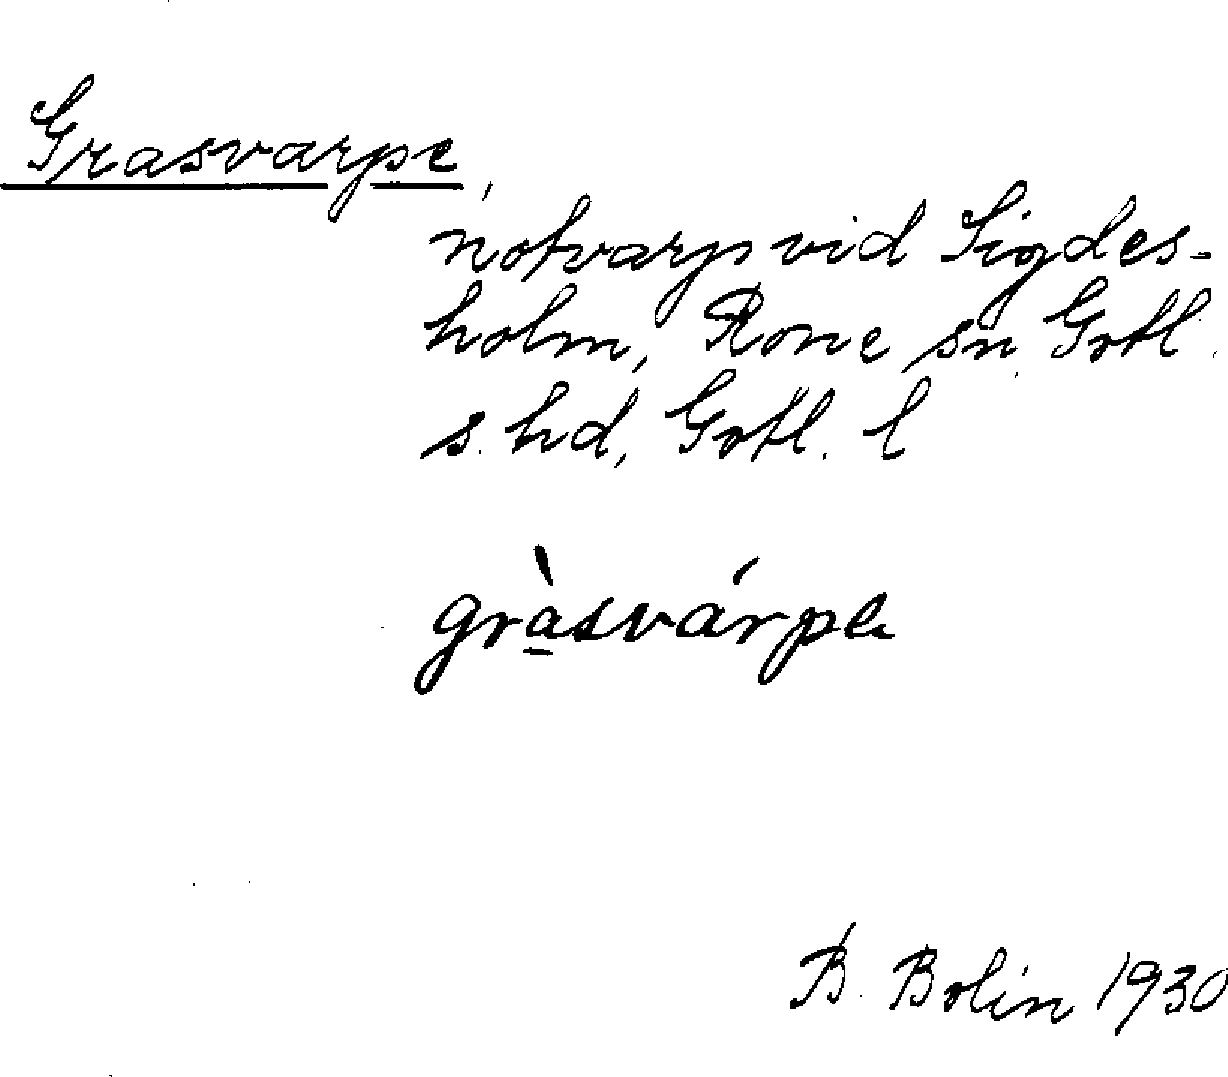 Grasvarpe,
notvarp vid Sigdes-
holm, Rone sn Gotl.
s. hd, Gotl. l
gràsvárpe
B. Bolin 1930